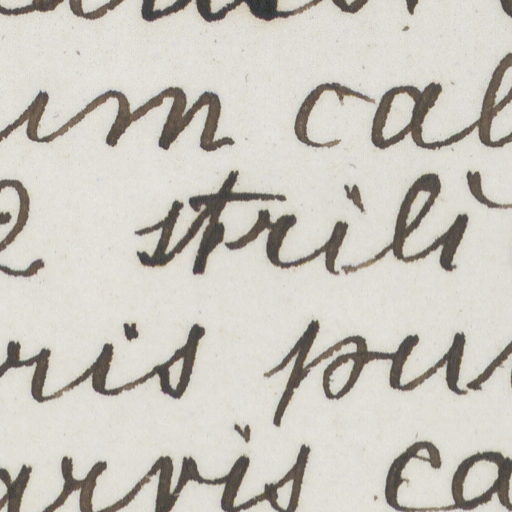 um cal
strili
ris pu
arvis ca